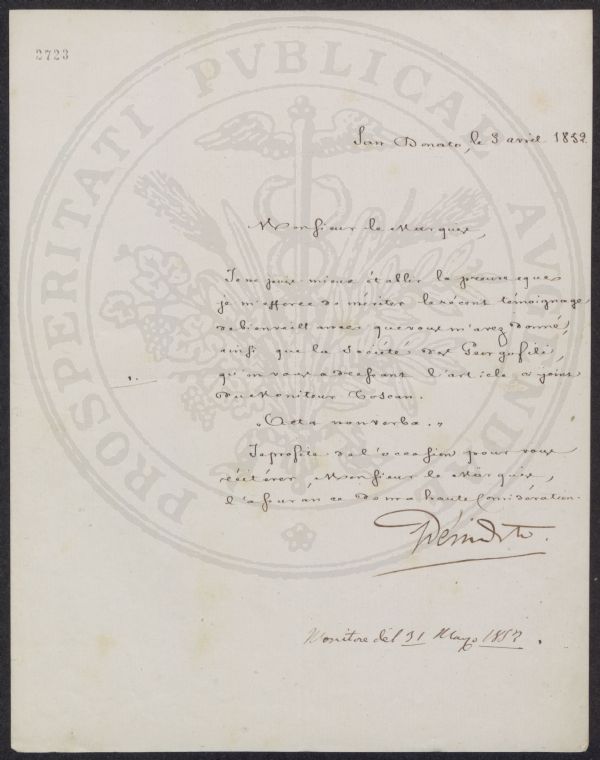 2723
PROSPERITATI PVBLICAE AVGENDAE
San Donato, le 3 avril 1852
Monsieur le Marquis,
Je ne puis mieux établir la preuve que
je m'efforce de mériter le récent témoignage
de bienveillance que vous m'avez donné,
ainsi que la Société des Georgofili,
qu'en vous adressant l'article ci joint
du Moniteur Toscan.
„Acta non verba.„
Je profite de l'occasion pour vous
réitérer, Monsieur le Marquis,
l'assurance de ma haute Considération.
Monitore del 31 Marzo 1852.